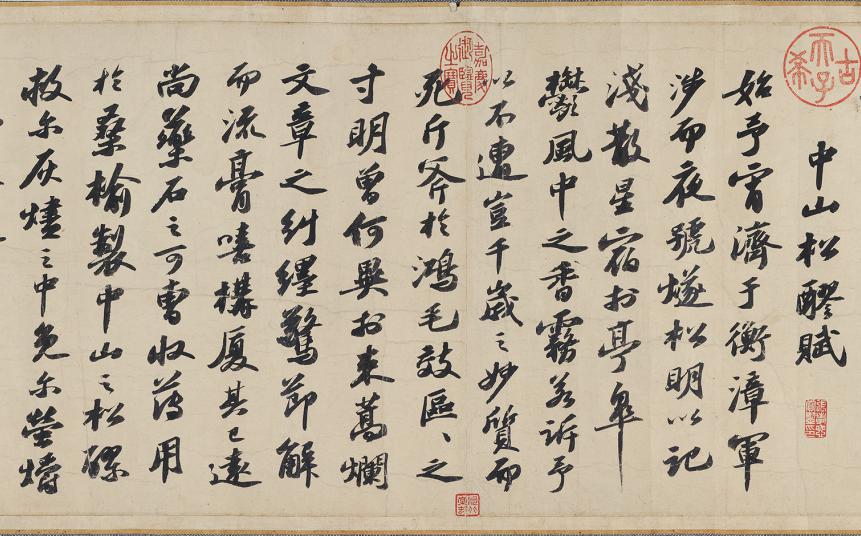 古希天子
中山松醪賦
始予宵濟于衡漳軍
涉而夜號燧松明以記
淺散星宿於亭皋
鬱風中之香霧若訴予
以不遭豈千歲之妙質而
死斤斧於鴻毛效區々之
寸明曾何異於束蒿爛
文章之糾纆驚節解
而流膏嘻構厦其已遠
尚藥石之可曹收薄用
於桑榆製中山之松醪
救尓灰燼之中免尓螢爝
嘉慶御覽之寶